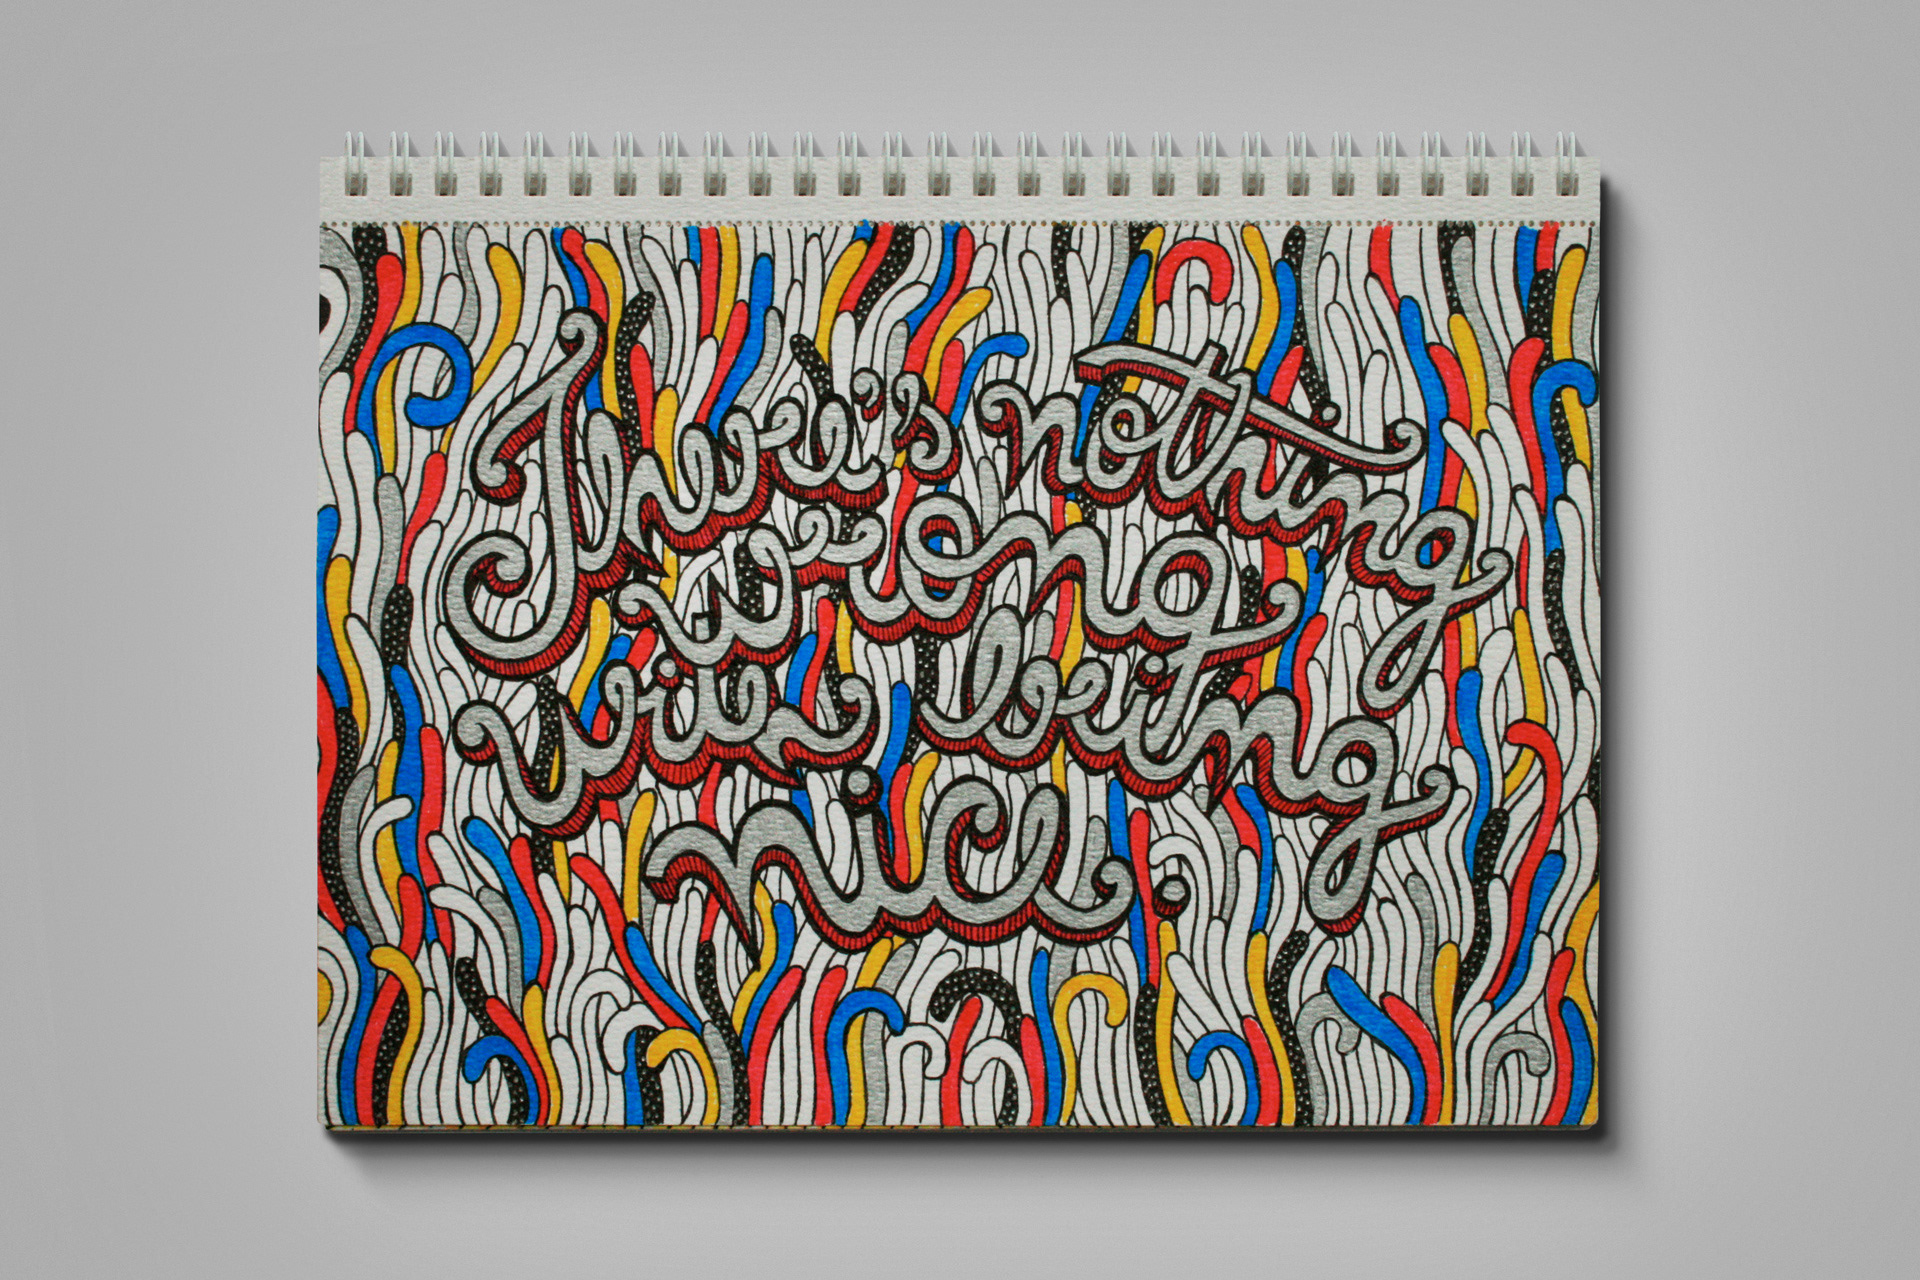 There's nothing
wrong
with being
nice.